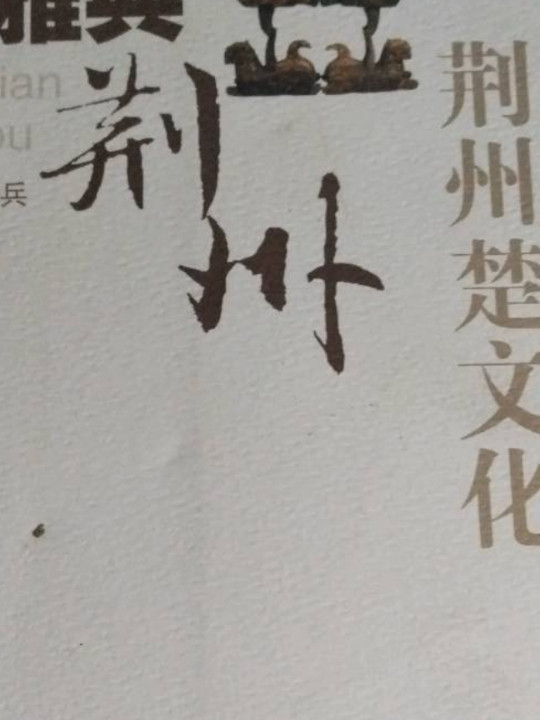 雅典
ian
ou
兵
荆
州
荆州楚文化